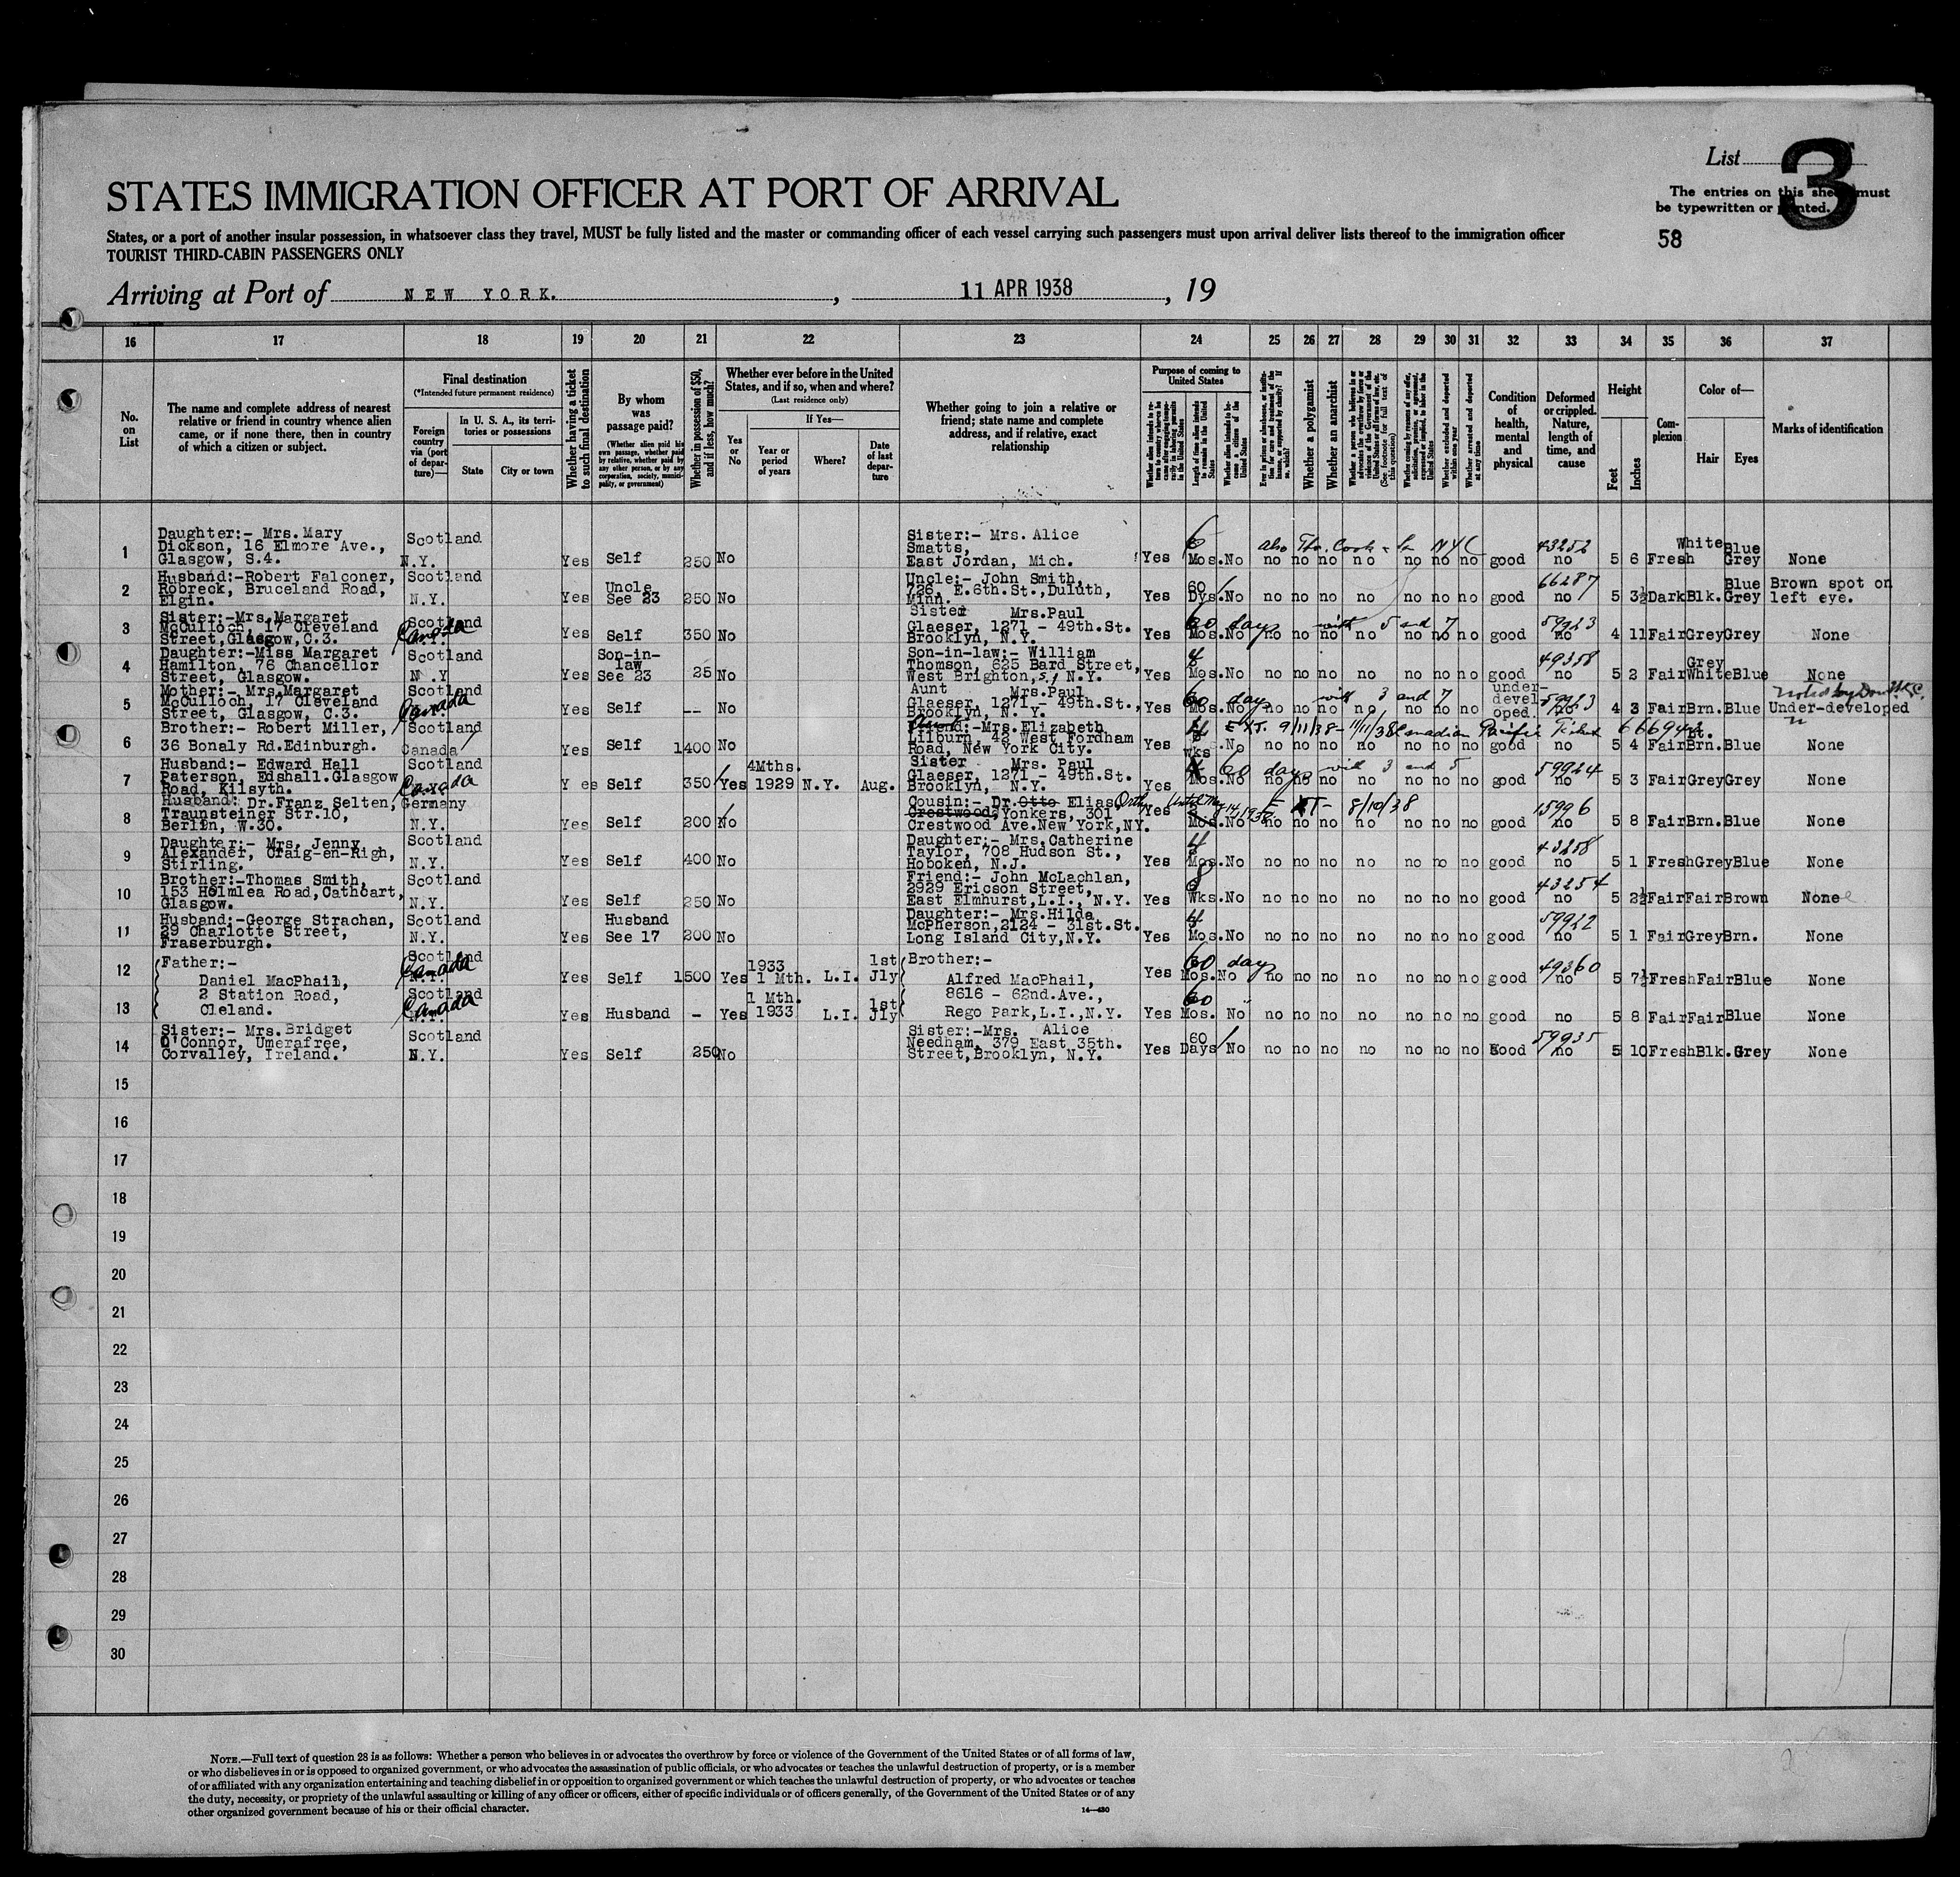 List 3
STATES IMMIGRATION OFFICER AT PORT OF ARRIVAL
The entries on this sheet must
be typewritten or printed.
58
States, or a port of another insular possession, in whatsoever class they travel, MUST be fully listed and the master or commanding officer of each vessel carrying such passengers must upon arrival deliver lists thereof to the immigration officer
TOURIST THIRD-CABIN PASSENGERS ONLY
Arriving at Port of NEW YORK. , 11 APR 1938 , 19
16 17 18 19 20 21 22 23 24 25 26 27 28 29 30 31 32 33 34 35 36 37
No. on List
The name and complete address of nearest relative or friend in country whence alien came, or if none there, then in country of which a citizen or subject.
Final destination
(*Intended future permanent residence)
Foreign country via (port of departure)—
In U. S. A., its territories or possessions
State
City or town
Whether having a ticket to such final destination
By whom was passage paid?
(Whether alien paid his own passage, whether paid by relative, whether paid by any other person, or by any corporation, society, municipality, or government)
Whether in possession of $50, and if less, how much?
Whether ever before in the United States, and if so, when and where?
(Last residence only)
Yes or No
If Yes—
Year or period of years
Where?
Date of last departure
Whether going to join a relative or friend; state name and complete address, and if relative, exact relationship
Purpose of coming to United States
Length of time alien intends to remain in the United States
Whether alien intends to become a citizen of the United States
Whether a polygamist
Whether an anarchist
Whether excluded and deported within one year
Whether arrested and deported at any time
Condition of health, mental and physical
Deformed or crippled. Nature, length of time, and cause
Height
Feet
Inches
Complexion
Color of—
Hair
Eyes
Marks of identification
1 Daughter:- Mrs. Mary Dickson, 16 Elmore Ave., Glasgow, S.4. Scotland N.Y. Yes Self 250 No Sister:- Mrs. Alice Smatts, East Jordan, Mich. Yes 6 Mos. No also Tho. Cook NYC no no no no no no no good 43252 no 5 6 Fresh White Blue Grey None
2 Husband:-Robert Falconer, Robreck, Bruceland Road, Elgin. Scotland N.Y. Yes Uncle See 23 250 No Uncle:- John Smith, 726, E.6th.St.,Duluth, Minn. Yes 60 Dys. No no no no no no no no good 66287 no 5 3½ Dark Blk. Blue Grey Brown spot on left eye.
3 Sister:-Mrs.Margaret McCulloch, 17 Cleveland Street,Glasgow,C.3. Scotland Canada Yes Self 350 No Sister Mrs.Paul Glaeser, 1271 - 49th.St. Brooklyn, N.Y. Yes 60 days Mos. No with 5 and 7 no no no no no no no good 59923 no 4 11 Fair Grey Grey None
4 Daughter:-Miss Margaret Hamilton, 76 Chancellor Street, Glasgow. Scotland N.Y Yes Son-in-law See 23 25 No Son-in-law:- William Thomson, 625 Bard Street, West Brighton,S.I N.Y. Yes Mos. No no no no no no no no good 49358 no 5 2 Fair Grey White Blue None
5 Mother:- Mrs.Margaret McCulloch, 17 Cleveland Street, Glasgow, C.3. Scotland Canada Yes Self -- No Aunt Mrs.Paul Glaeser, 1271 - 49th.St., Brooklyn, N. Y. Yes 60 days Mos. No with 3 and 7 no no no no no no no under-developed. 59923 no 4 3 Fair Brn. Blue Under-developed
6 Brother:- Robert Miller, 36 Bonaly Rd.Edinburgh. Scotland Canada Yes Self 1400 No Friend:-Mrs.Elizabeth Lilburn, 48 West Fordham Road, New York City. Yes wks No EXT. 9/11/38 - 11/11/38 Canadian Pacific Ticket no no no no no no no good no 5 4 Fair Brn. Blue None
7 Husband:- Edward Hall Paterson, Edshall.Glasgow Road, Kilsyth. Scotland Canada Yes Self 350 Yes 4Mths. 1929 N.Y. Aug. Sister Mrs. Paul Glaeser, 1271 - 49th.St. Brooklyn, N.Y. Yes 60 days Mos. No with 3 and 5 no no no no no no no good 59924 no 5 3 Fair Grey Grey None
8 Husband: Dr.Franz Selten, Traunsteiner Str.10, Berlin, W.30. Germany N.Y. Yes Self 200 No Cousin:- Dr.Otto Elias Crestwood,Yonkers, 301 Crestwood Ave.New York,NY. Yes Mos. No EXT- 8/10/38 no no no no no no no good 15996 no 5 8 Fair Brn. Blue None
9 Daughter:- Mrs. Jenny Alexander, Craig-en-Righ, Stirling. Scotland N.Y. Yes Self 400 No Daughter:- Mrs.Catherine Taylor, 708 Hudson St., Hoboken, N.J. Yes 4 Mos. No no no no no no no no good 43258 no 5 1 Fresh Grey Blue None
10 Brother:-Thomas Smith, 153 Holmlea Road,Cathcart, Glasgow. Scotland N.Y. Yes Self 250 No Friend:- John McLachlan, 2929 Ericson Street, East Elmhurst,L.I., N.Y. Yes 8 Wks. No no no no no no no no good 43254 no 5 2½ Fair Fair Brown None
11 Husband:-George Strachan, 29 Charlotte Street, Fraserburgh. Scotland N.Y. Yes Husband See 17 200 No Daughter:- Mrs.Hilda McPherson,2124 - 31st.St. Long Island City,N.Y. Yes 4 Mos. No no no no no no no no good 59922 no 5 1 Fair Grey Brn. None
12 Father:- Daniel MacPhail, 2 Station Road, Cleland. Scotland Canada Yes Self 1500 Yes 1933 1 Mth. L.I. 1st Jly Brother:- Alfred MacPhail, 8616 - 62nd.Ave., Rego Park,L.I.,N.Y. Yes 60 days Mos. No no no no no no no no good 49360 no 5 7½ Fresh Fair Blue None
13 Scotland Canada Yes Husband - Yes 1 Mth. 1933 L.I. 1st Jly Yes 60 " Mos. No no no no no no no no good no 5 8 Fair Fair Blue None
14 Sister:- Mrs. Bridget O'Connor, Umerafree, Corvalley, Ireland. Scotland N.Y. Yes Self 250 No Sister:-Mrs. Alice Needham, 379 East 35th. Street,Brooklyn, N.Y. Yes 60 Days No no no no no no no no Good 59935 no 5 10 Fresh Blk. Grey None
15
16
17
18
19
20
21
22
23
24
25
26
27
28
29
30
NOTE.—Full text of question 28 is as follows: Whether a person who believes in or advocates the overthrow by force or violence of the Government of the United States or of all forms of law,
or who disbelieves in or is opposed to organized government, or who advocates the assassination of public officials, or who advocates or teaches the unlawful destruction of property, or is a member
of or affiliated with any organization entertaining and teaching disbelief in or opposition to organized government or which teaches the unlawful destruction of property, or who advocates or teaches
the duty, necessity, or propriety of the unlawful assaulting or killing of any officer or officers, either of specific individuals or of officers generally, of the Government of the United States or of any
other organized government because of his or their official character.
14—430